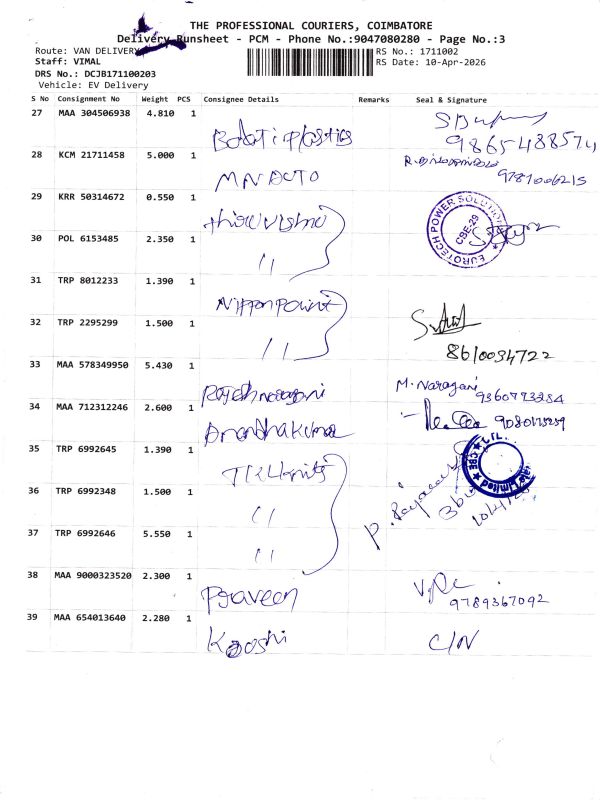 THE PROFESSIONAL COURIERS, COIMBATORE
Delivery Runsheet - PCM - Phone No.:9047080280 - Page No.:3
Route: VAN DELIVERY
RS No.: 1711002
Staff: VIMAL
RS Date: 10-Apr-2026
DRS No.: DCJB171100203
Vehicle: EV Delivery
S No Consignment No Weight PCS Consignee Details Remarks Seal & Signature
27 MAA 304506938 4.810 1 plastics 9865488574
28 KCM 21711458 5.000 1 MN AUTO 9781006215
29 KRR 50314672 0.550 1 EUROTECH POWER SOLUTION CBE-29
30 POL 6153485 2.350 1 11
31 TRP 8012233 1.390 1 Nippon paint
32 TRP 2295299 1.500 1 11 8610034722
33 MAA 578349950 5.430 1 M. Narayani 9360773284
34 MAA 712312246 2.600 1 Anandhakumar
35 TRP 6992645 1.390 1 Limited CBE
36 TRP 6992348 1.500 1 11
37 TRP 6992646 5.550 1 11
38 MAA 9000323520 2.300 1 Praveen 9789367092
39 MAA 654013640 2.280 1 C/N